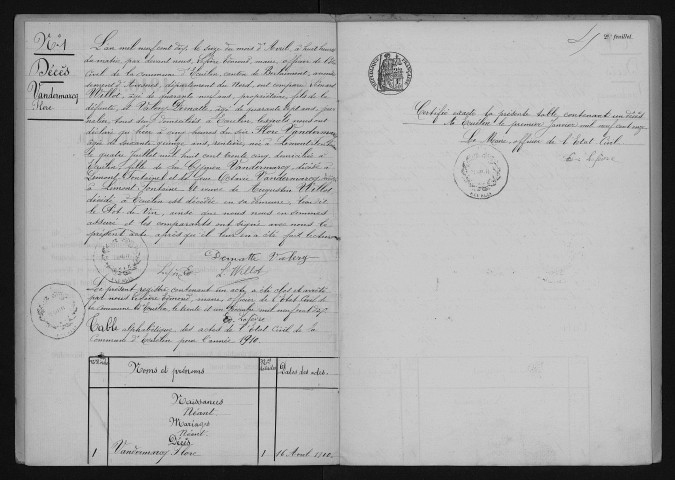 N° 1
Décès
Vandermarcy
Flore
L'an mil neuf cent dix, le seize du mois d'Avril, à huit heures
du matin, par devant nous, Lefèvre Edmond, maire, officier de l'état
civil de la commune d'Ecuélin, canton de Berlaimont, arrondis
sement d'Avesnes, département du Nord, ont comparu Léonard
Willot, âgé de quarante neuf ans, propriétaire, fils de la
défunte, et Valery Dematte, âgé de quarante sept ans, jour
nalier, tous deux domiciliés à Ecuélin, lesquels nous ont
déclaré qu'hier à cinq heures du soir Flore Vandermarcy,
âgée de soixante quinze ans, rentière, née à
le quatre juillet mil huit cent trente cinq, domiciliée à
Ecuélin, fille de feu Vandermarcy, décédé à
Limont-Fontaine, et de feue
à Limont-Fontaine et veuve de Augustin Willot
décédé à Ecuélin est décédée en sa demeure, lieu dit
le Pot de Vin, ainsi que nous nous en sommes
assuré et les comparants ont signé avec nous le
présent acte après qu'il leur en a été fait lecture
Dematte Valery
L. Willot
Le présent registre contenant un acte a été clos et arrêté
par nous Lefèvre Edmond, maire, officier de l'état civil de
la commune d'Ecuélin, le trente et un Décembre mil neuf cent dix.
Ed. Lefèvre
Table alphabétique des actes de l'état civil de la
Commune d'Ecuélin pour l'année 1910.
Noms et prénoms
Dates des actes.
Naissances
Néant
Mariages
Néant
Décès
1 Vandermarcy Flore 1 16 Avril 1910
2e feuillet.
Certifiée exacte la présente table contenant un décès
à Ecuélin le premier janvier mil neuf cent onze
Le Maire officier de l'état Civil
Ed. Lefèvre